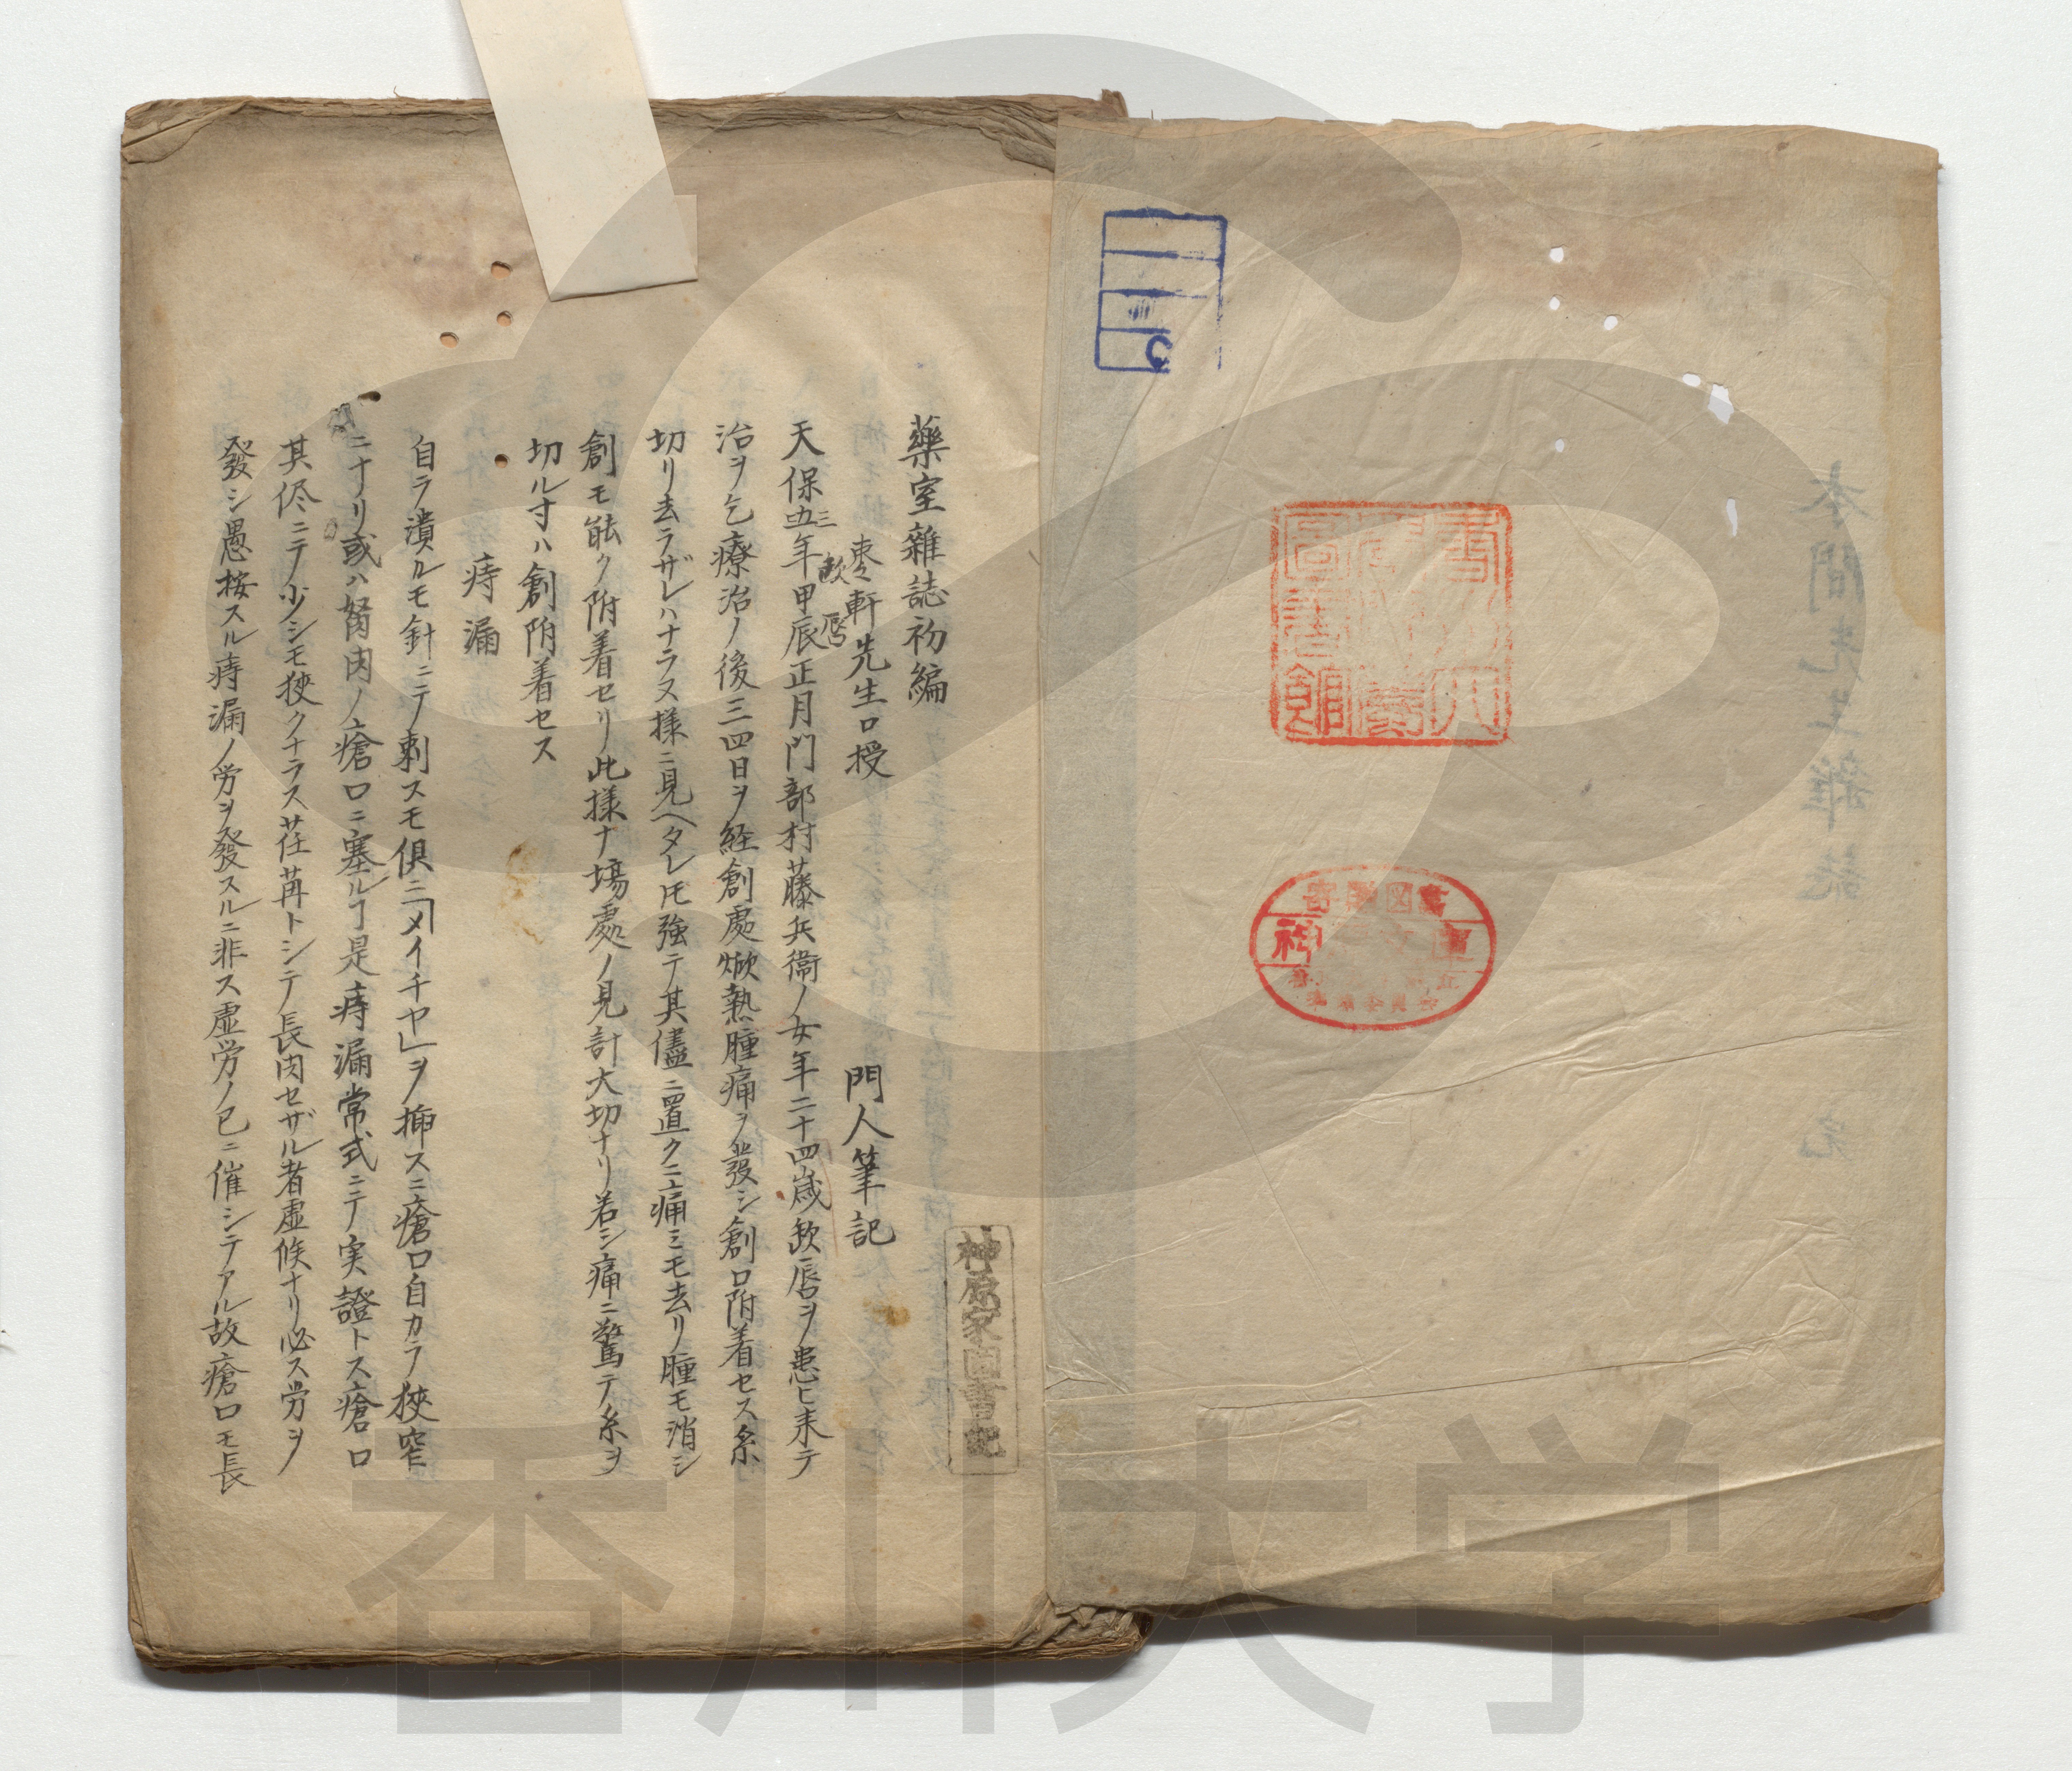 藥室雜誌初編
棗軒先生口授 門人筆記
天保五年甲辰正月門部村藤兵衞ノ女年二十四歳欬唇ヲ患ヒ来テ
三
欬唇
治ヲ乞療治ノ後三四日ヲ経創處焮熱腫痛ヲ發シ創口附着セス糸
切リ去ラザレハナラヌ様ニ見ヘタレ𪜈強テ其儘ニ置クニ痛ミモ去リ腫モ消シ
創モ能ク附着セリ此様ナ場處ノ見計大切ナリ若シ痛ニ驚テ糸ヲ
切ル寸ハ創附着セス
痔漏
自ラ潰ルモ針ニテ刺スモ倶ニ「メイチヤ」ヲ挿スニ瘡口自カラ狹窄
ニナリ或ハ努肉ノ瘡口ニ塞ルヿ是痔漏常式ニテ実證トス瘡口
其侭ニテ少シモ狹クナラス荏苒トシテ長肉セザル者虚候ナリ必ス労ヲ
發シ愚桉スル痔漏ノ労ヲ發スルニ非ス虚労ノ已ニ催シテアル故瘡口モ長
神原家圖書記
本間先生雜誌 完
香川大学